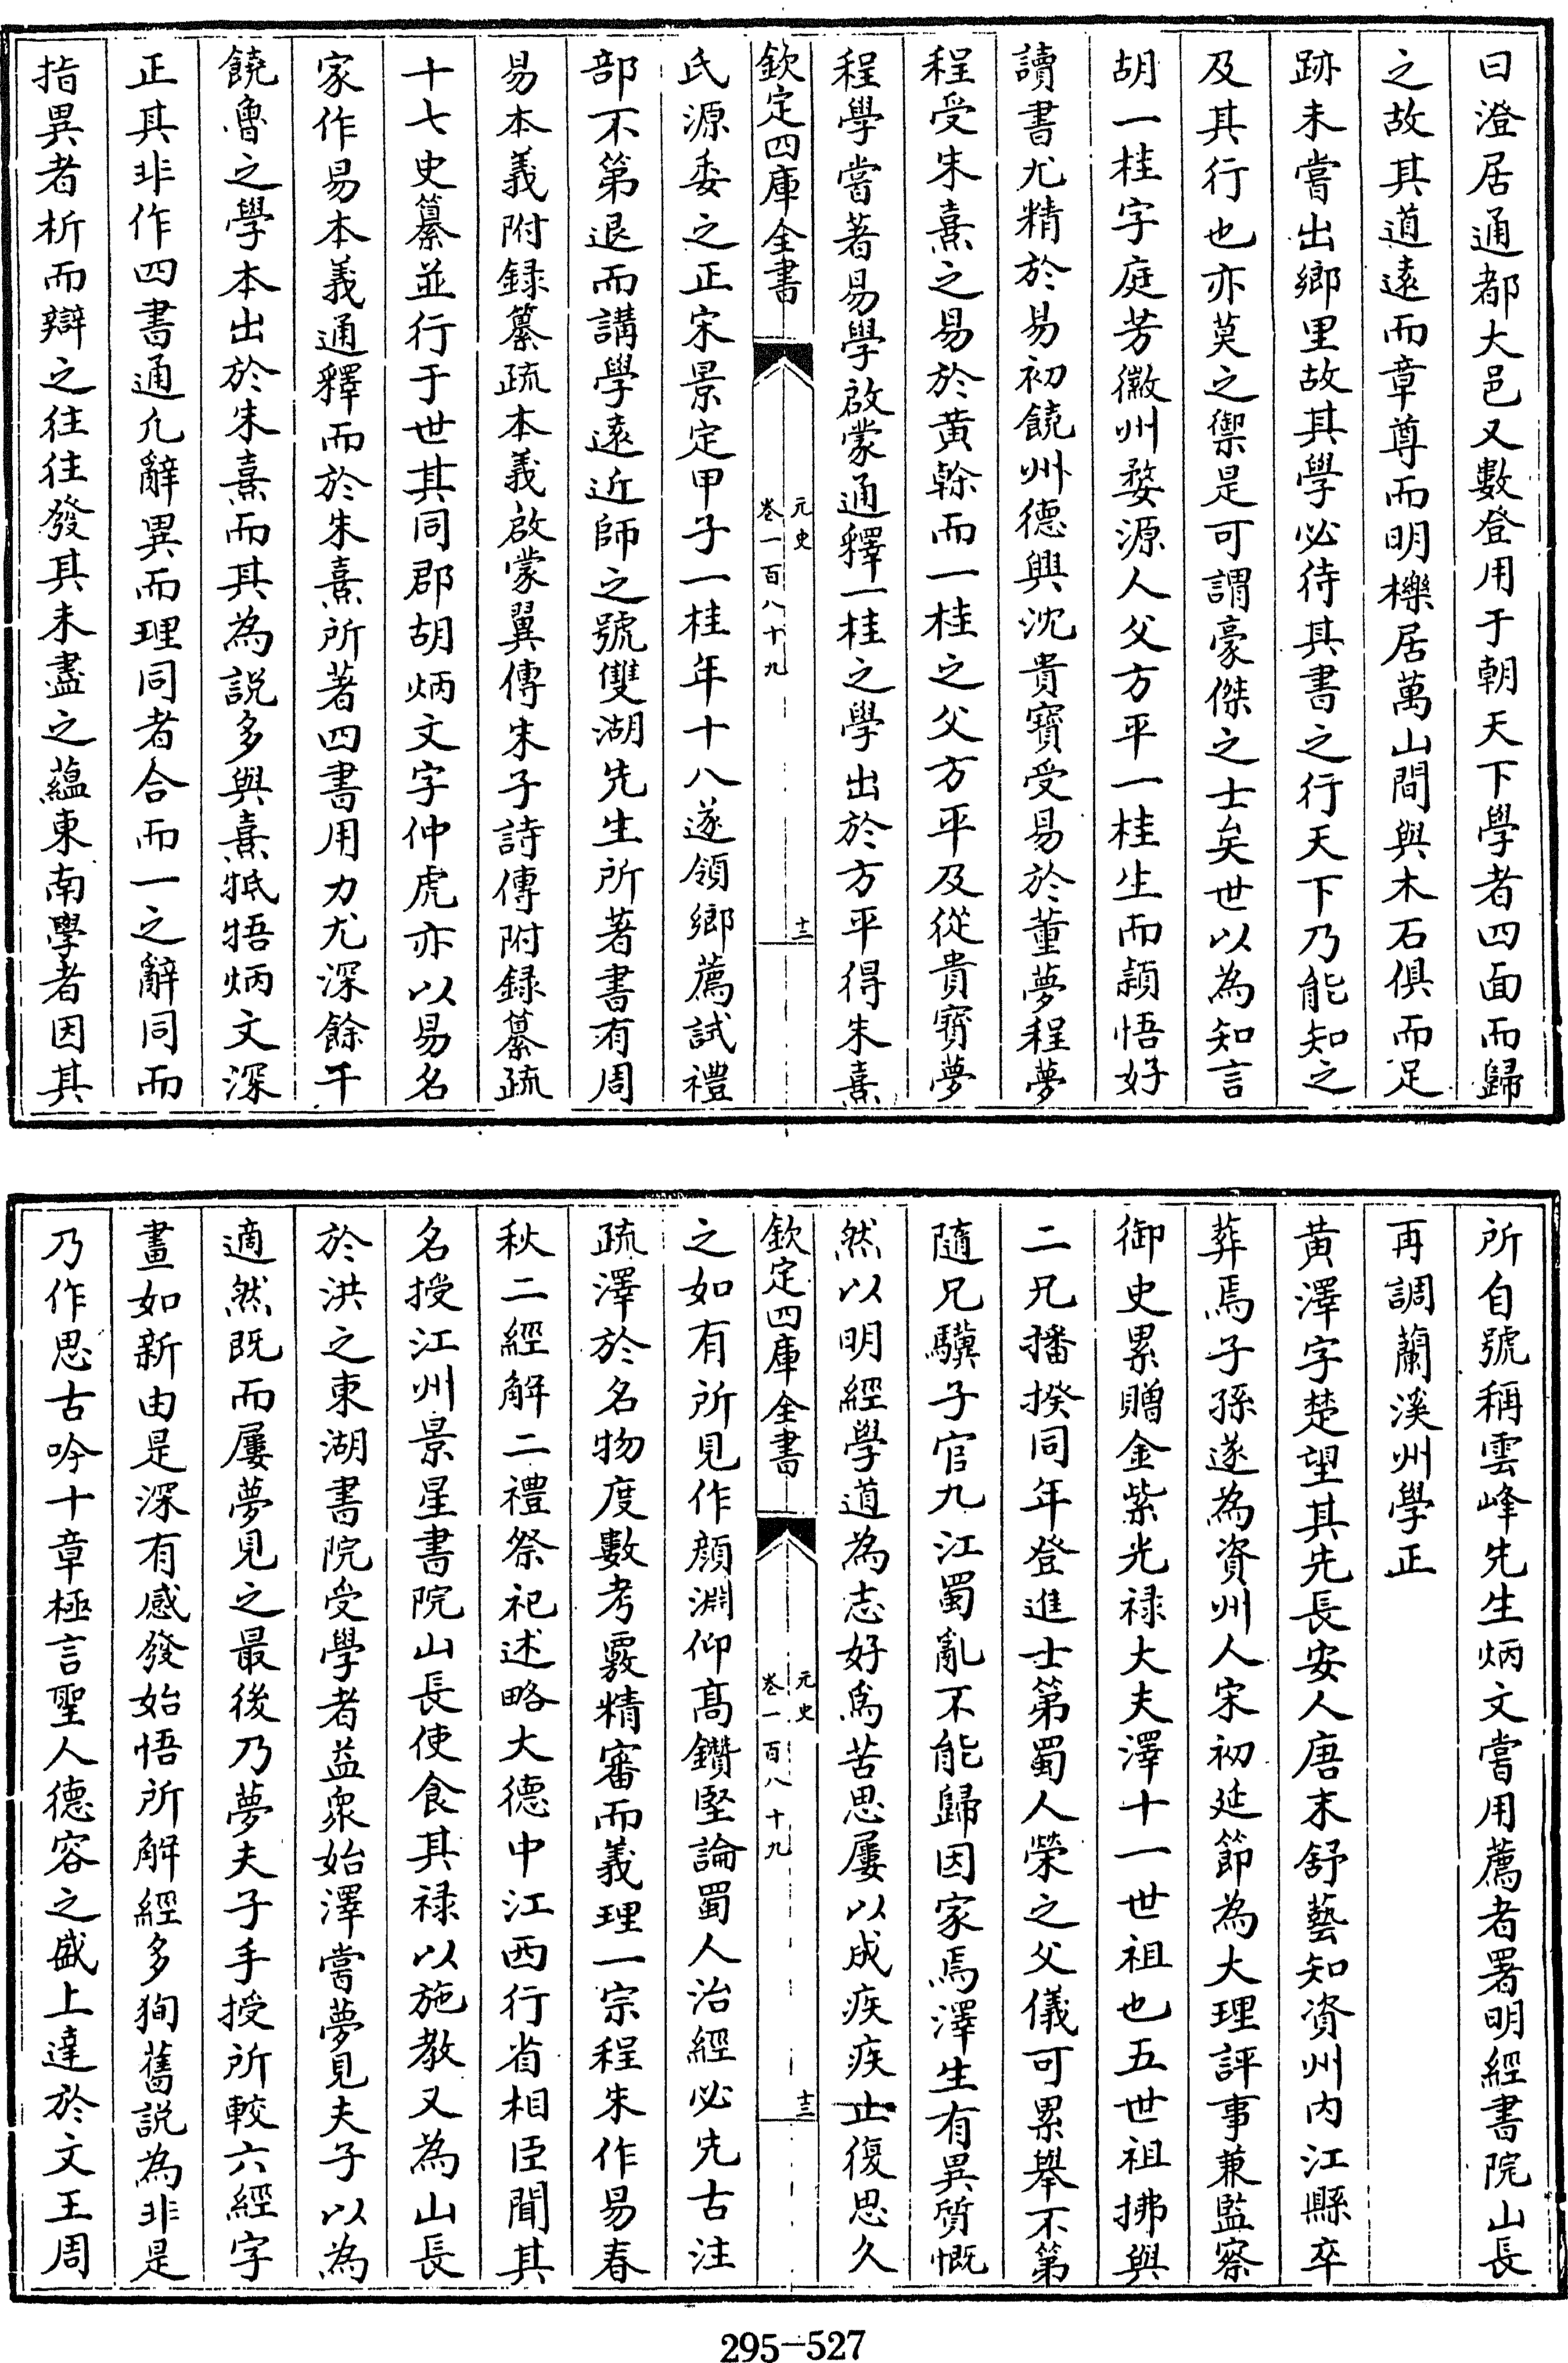 曰澄居通都大邑又數登用于朝天下學者四面而歸
之故其道遠而章尊而明櫟居萬山間與木石俱而足
跡未嘗出鄉里故其學必待其書之行天下乃能知之
及其行也亦莫之禦是可謂豪傑之士矣世以為知言
胡一桂字庭芳徽州婺源人父方平一桂生而頴悟好
讀書尤精於易初饒州德興沈貴寶受易於董夢程夢
程受朱熹之易於黄榦而一桂之父方平及從貴寶夢
程學嘗著易學啟蒙通釋一桂之學出於方平得朱熹
欽定四庫全書
元史
卷一百八十九
十二
氏源委之正宋景定甲子一桂年十八遂領鄉薦試禮
部不第退而講學遠近師之號雙湖先生所著書有周
易本義附録纂疏本義啟蒙翼傳朱子詩傳附録纂疏
十七史纂並行于世其同郡胡炳文字仲虎亦以易名
家作易本義通釋而於朱熹所著四書用力尤深餘干
饒魯之學本出於朱熹而其為説多與熹牴牾炳文深
正其非作四書通凡辭異而理同者合而一之辭同而
指異者析而辯之往往發其未盡之蘊東南學者因其
所自號稱雲峰先生炳文嘗用薦者署明經書院山長
再調蘭溪州學正
黄澤字楚望其先長安人唐末舒藝知資州内江縣卒
葬焉子孫遂為資州人宋初延節為大理評事兼監察
御史累贈金紫光禄大夫澤十一世祖也五世祖拂與
二兄播揆同年登進士第蜀人榮之父儀可累舉不第
隨兄驥子官九江蜀亂不能歸因家焉澤生有異質慨
然以明經學道為志好爲苦思屢以成疾疾止復思久
欽定四庫全書
元史
卷一百八十九
十三
之如有所見作顔淵仰髙鑽堅論蜀人治經必先古注
疏澤於名物度數考覈精審而義理一宗程朱作易春
秋二經解二禮祭祀述略大德中江西行省相臣聞其
名授江州景星書院山長使食其禄以施教又為山長
於洪之東湖書院受學者益衆始澤嘗夢見夫子以為
適然既而屢夢見之最後乃夢夫子手授所較六經字
畫如新由是深有感發始悟所解經多狥舊説為非是
乃作思古吟十章極言聖人德容之盛上達於文王周
295-527